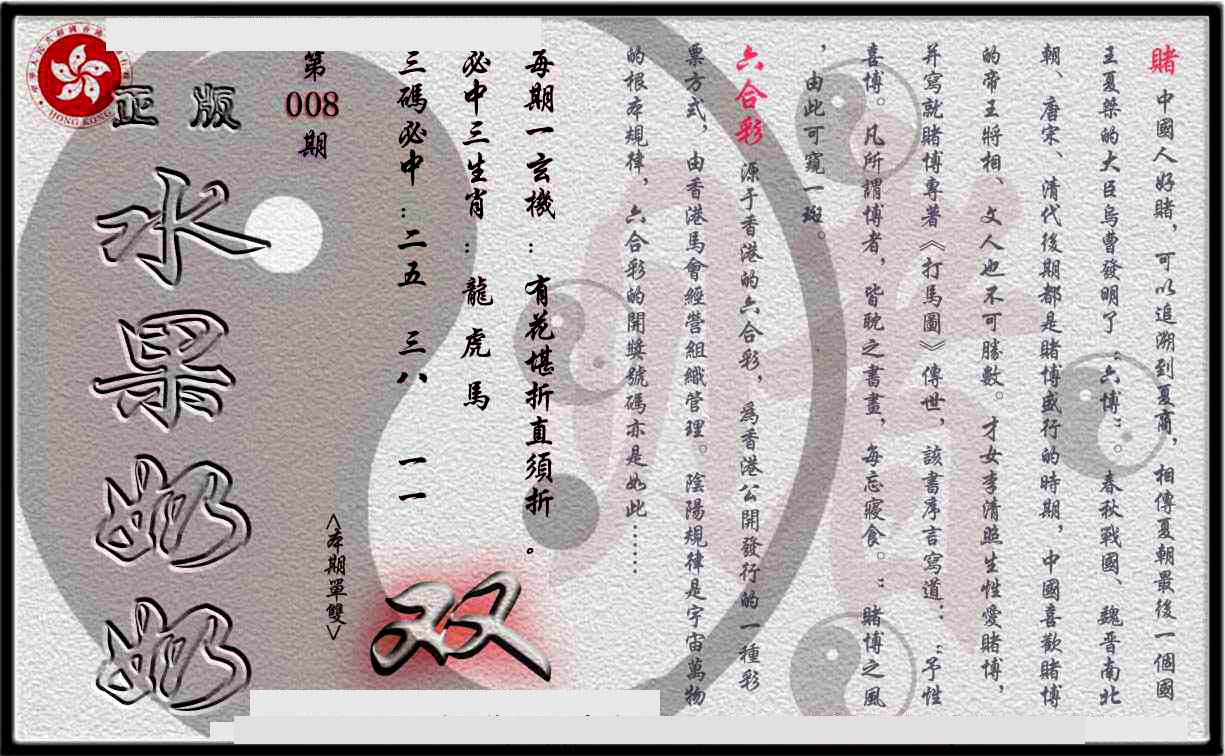 賭 中國人好賭，可以追溯到夏商，相傳夏朝最後一個國
王夏桀的大臣烏曹發明了“六博”。春秋戰國、魏晋南北
朝、唐宋、清代後期都是賭博盛行的時期，中國喜歡賭博
的帝王將相、文人也不可勝數。才女李清照生性愛賭博，
并寫就賭博專著《打馬圖》傳世，該書序言寫道：“予性
喜博。凡所謂博者，皆耽之晝，每忘寢食。”賭博之風
，由此可窺一斑。
六合彩 源于香港的六合彩，為香港公開發行的一種彩
票方式，由香港馬會經營組織管理。陰陽規律是宇宙萬物
的根本規律，六合彩的開獎號碼亦是如此……
每期一玄機：有花堪折直須折。
必中三生肖：龍虎馬
三碼必中：二五 三八 一一
第008期
<本期單雙>
双
正版
水果奶奶
HONG KONG